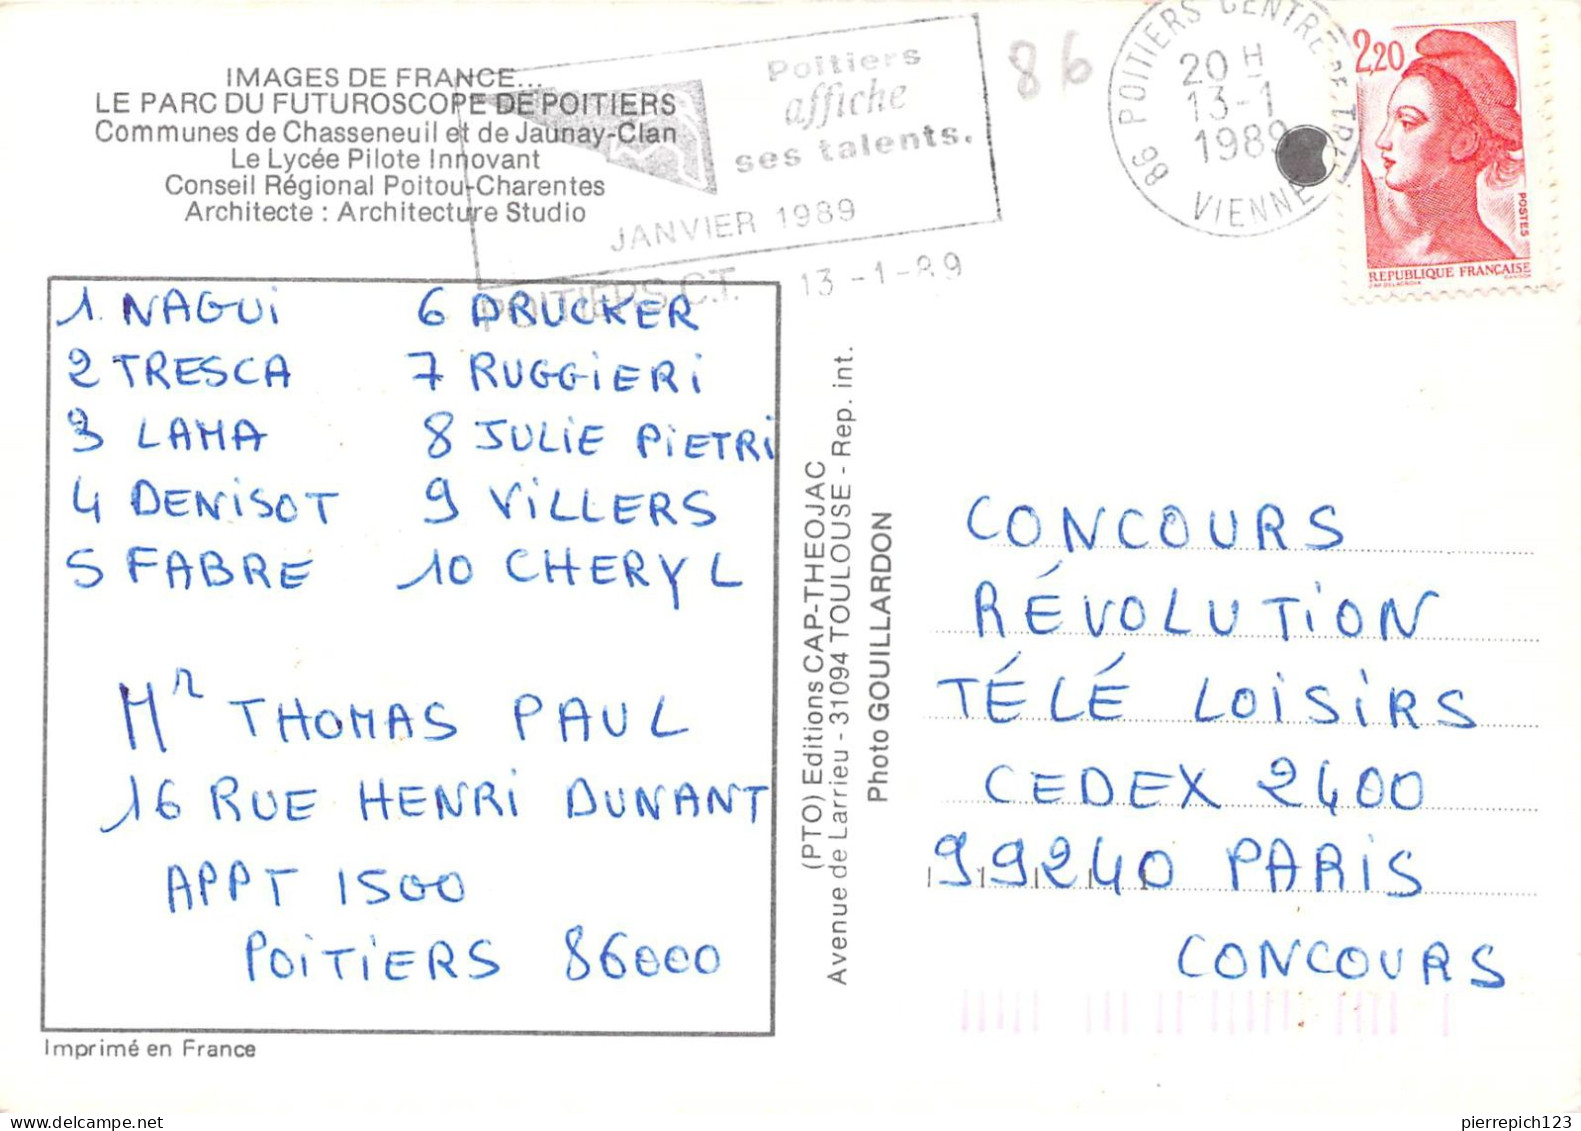 IMAGES DE FRANCE...
LE PARC DU FUTUROSCOPE DE POITIERS
Communes de Chasseneuil et de Jaunay-Clan
Le Lycée Pilote Innovant
Conseil Régional Poitou-Charentes
Architecte : Architecture Studio
Poitiers
affiche
ses talents.
JANVIER 1989
POITIERS C.T. 13-1-89
86
86 POITIERS CENTRE DE TRI
20 H
13-1
1989
VIENNE
2,20
POSTES
REPUBLIQUE FRANÇAISE
1 NAGUI
2 TRESCA
3 LAMA
4 DENISOT
5 FABRE
6 DRUCKER
7 RUGGIERI
8 JULIE PIETRI
9 VILLERS
10 CHERYL
Mr THOMAS PAUL
16 RUE HENRI DUNANT
APPT 1500
POITIERS 86000
Imprimé en France
(PTO) Editions CAP-THEOJAC
Avenue de Larrieu - 31094 TOULOUSE - Rep. int.
Photo GOUILLARDON
CONCOURS
RÉVOLUTION
TÉLÉ LOISIRS
CEDEX 2400
99240 PARIS
CONCOURS
pierrepich123